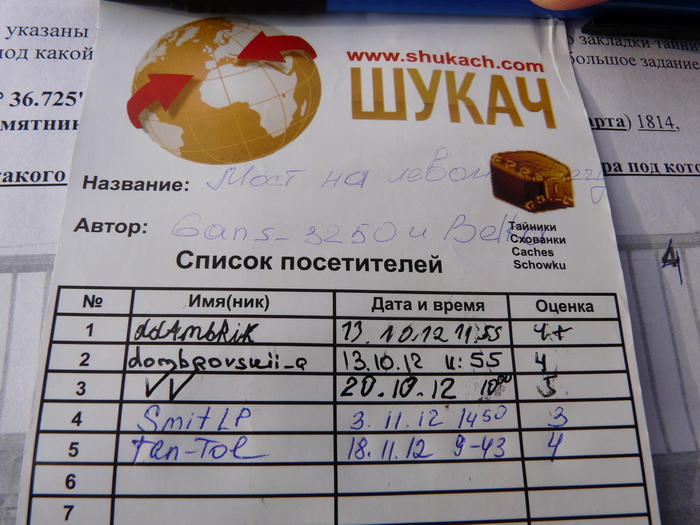 указаны
о закладки тайни
под какой
www.shukach.com
большое задание
ШУКАЧ
° 36.725'
мятник
арта) 1814,
такого
ра под кото
Название: Мост на левом
Автор: Gans-3250 и
Тайники
Схованки
Caches
Schowku
4
Список посетителей
№ Имя(ник) Дата и время Оценка
1 13.10.12 11:55 4+
2 dombrovskii_a 13.10.12 11:55 4
3 VV 20.10.12 10⁰⁰ 5
4 Smit LP 3.11.12 14 50 3
5 Tan-Tol 18.11.12 9-43 4
6
7